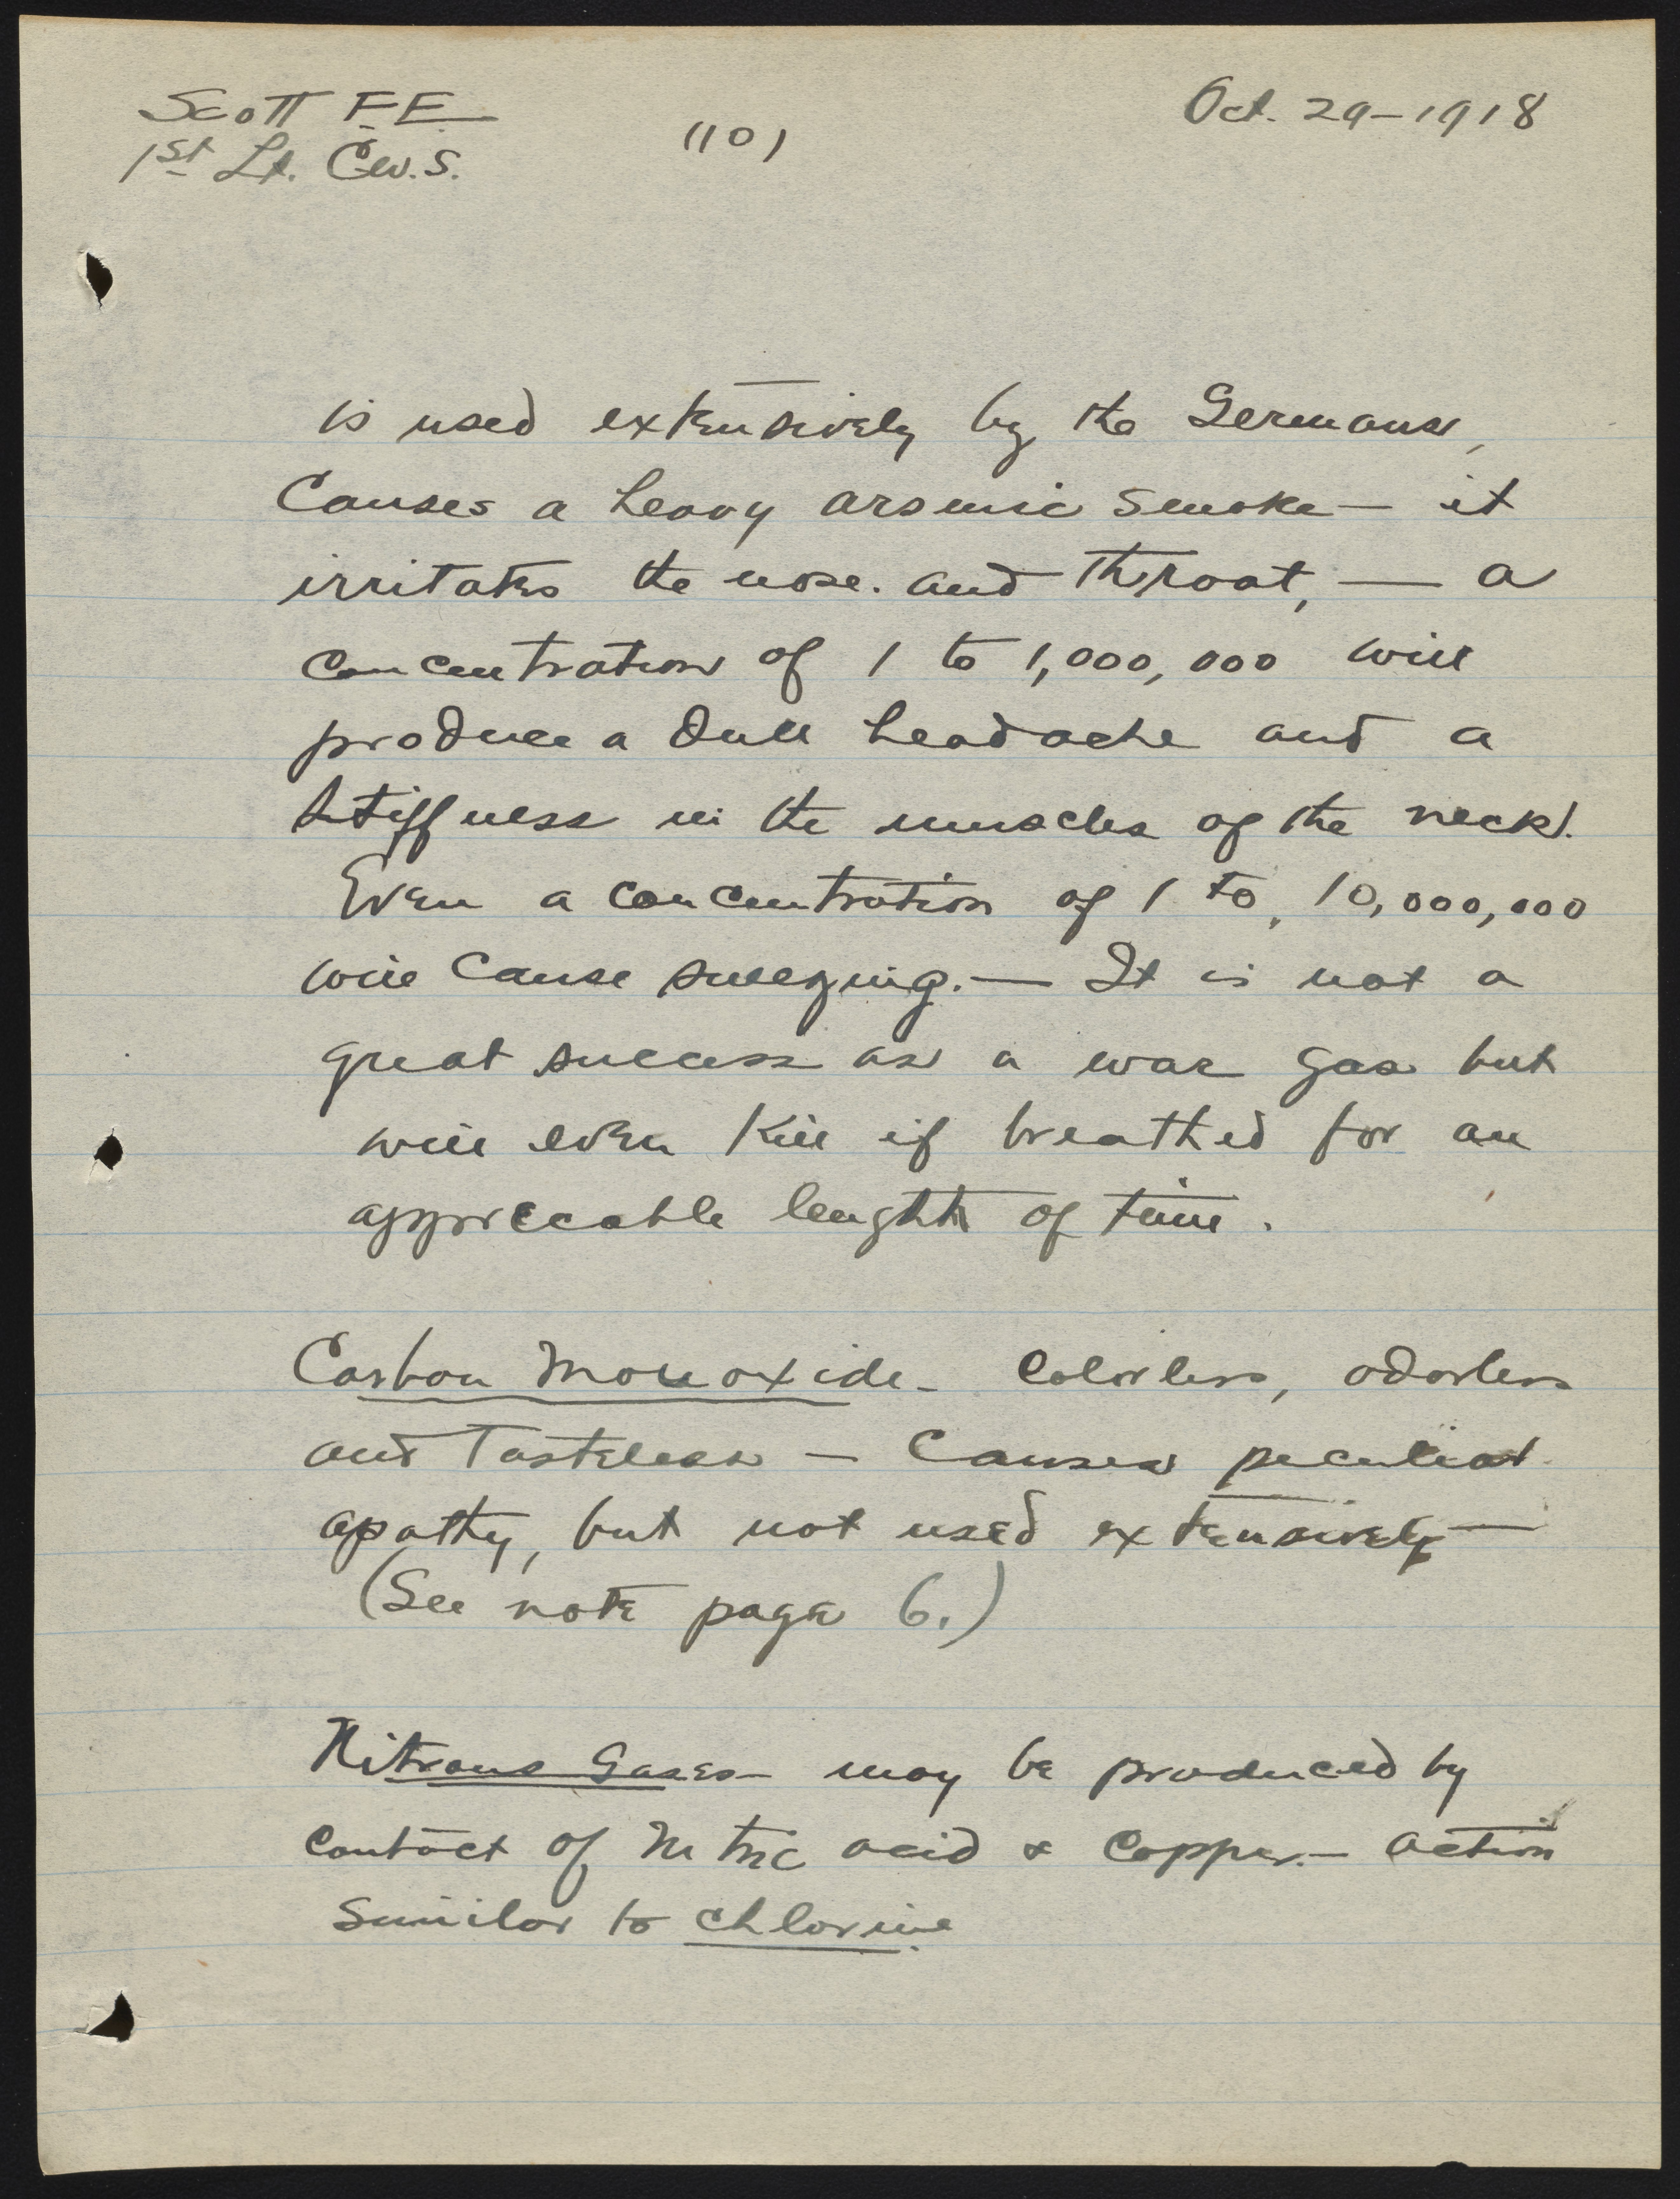 Scott F.E.
1st Lt. C.W.S.
(10)
Oct. 29-1918
is used extensively by the Germans,
Causes a heavy arsenic smoke — it
irritates the nose. and throat, — a
concentration of 1 to 1,000,000 will
produce a dull headache and a
stiffness in the muscles of the neck.
Even a concentration of 1 to 10,000,000
will cause sneezing. — It is not a
great success as a war gas but
will even kill if breathed for an
appreccable lenghth of time.
Carbon Monoxide - Colorless, odorless
and Tasteless — Causes peculiar
apathy, but not used extensively —
(See note page 6.)
Nitrous Gases - may be produced by
contact of Nitric acid & Copper. — action
similar to chlorine.